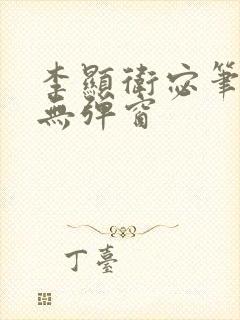 李顯衛宓筆
無彈窗
丁臺